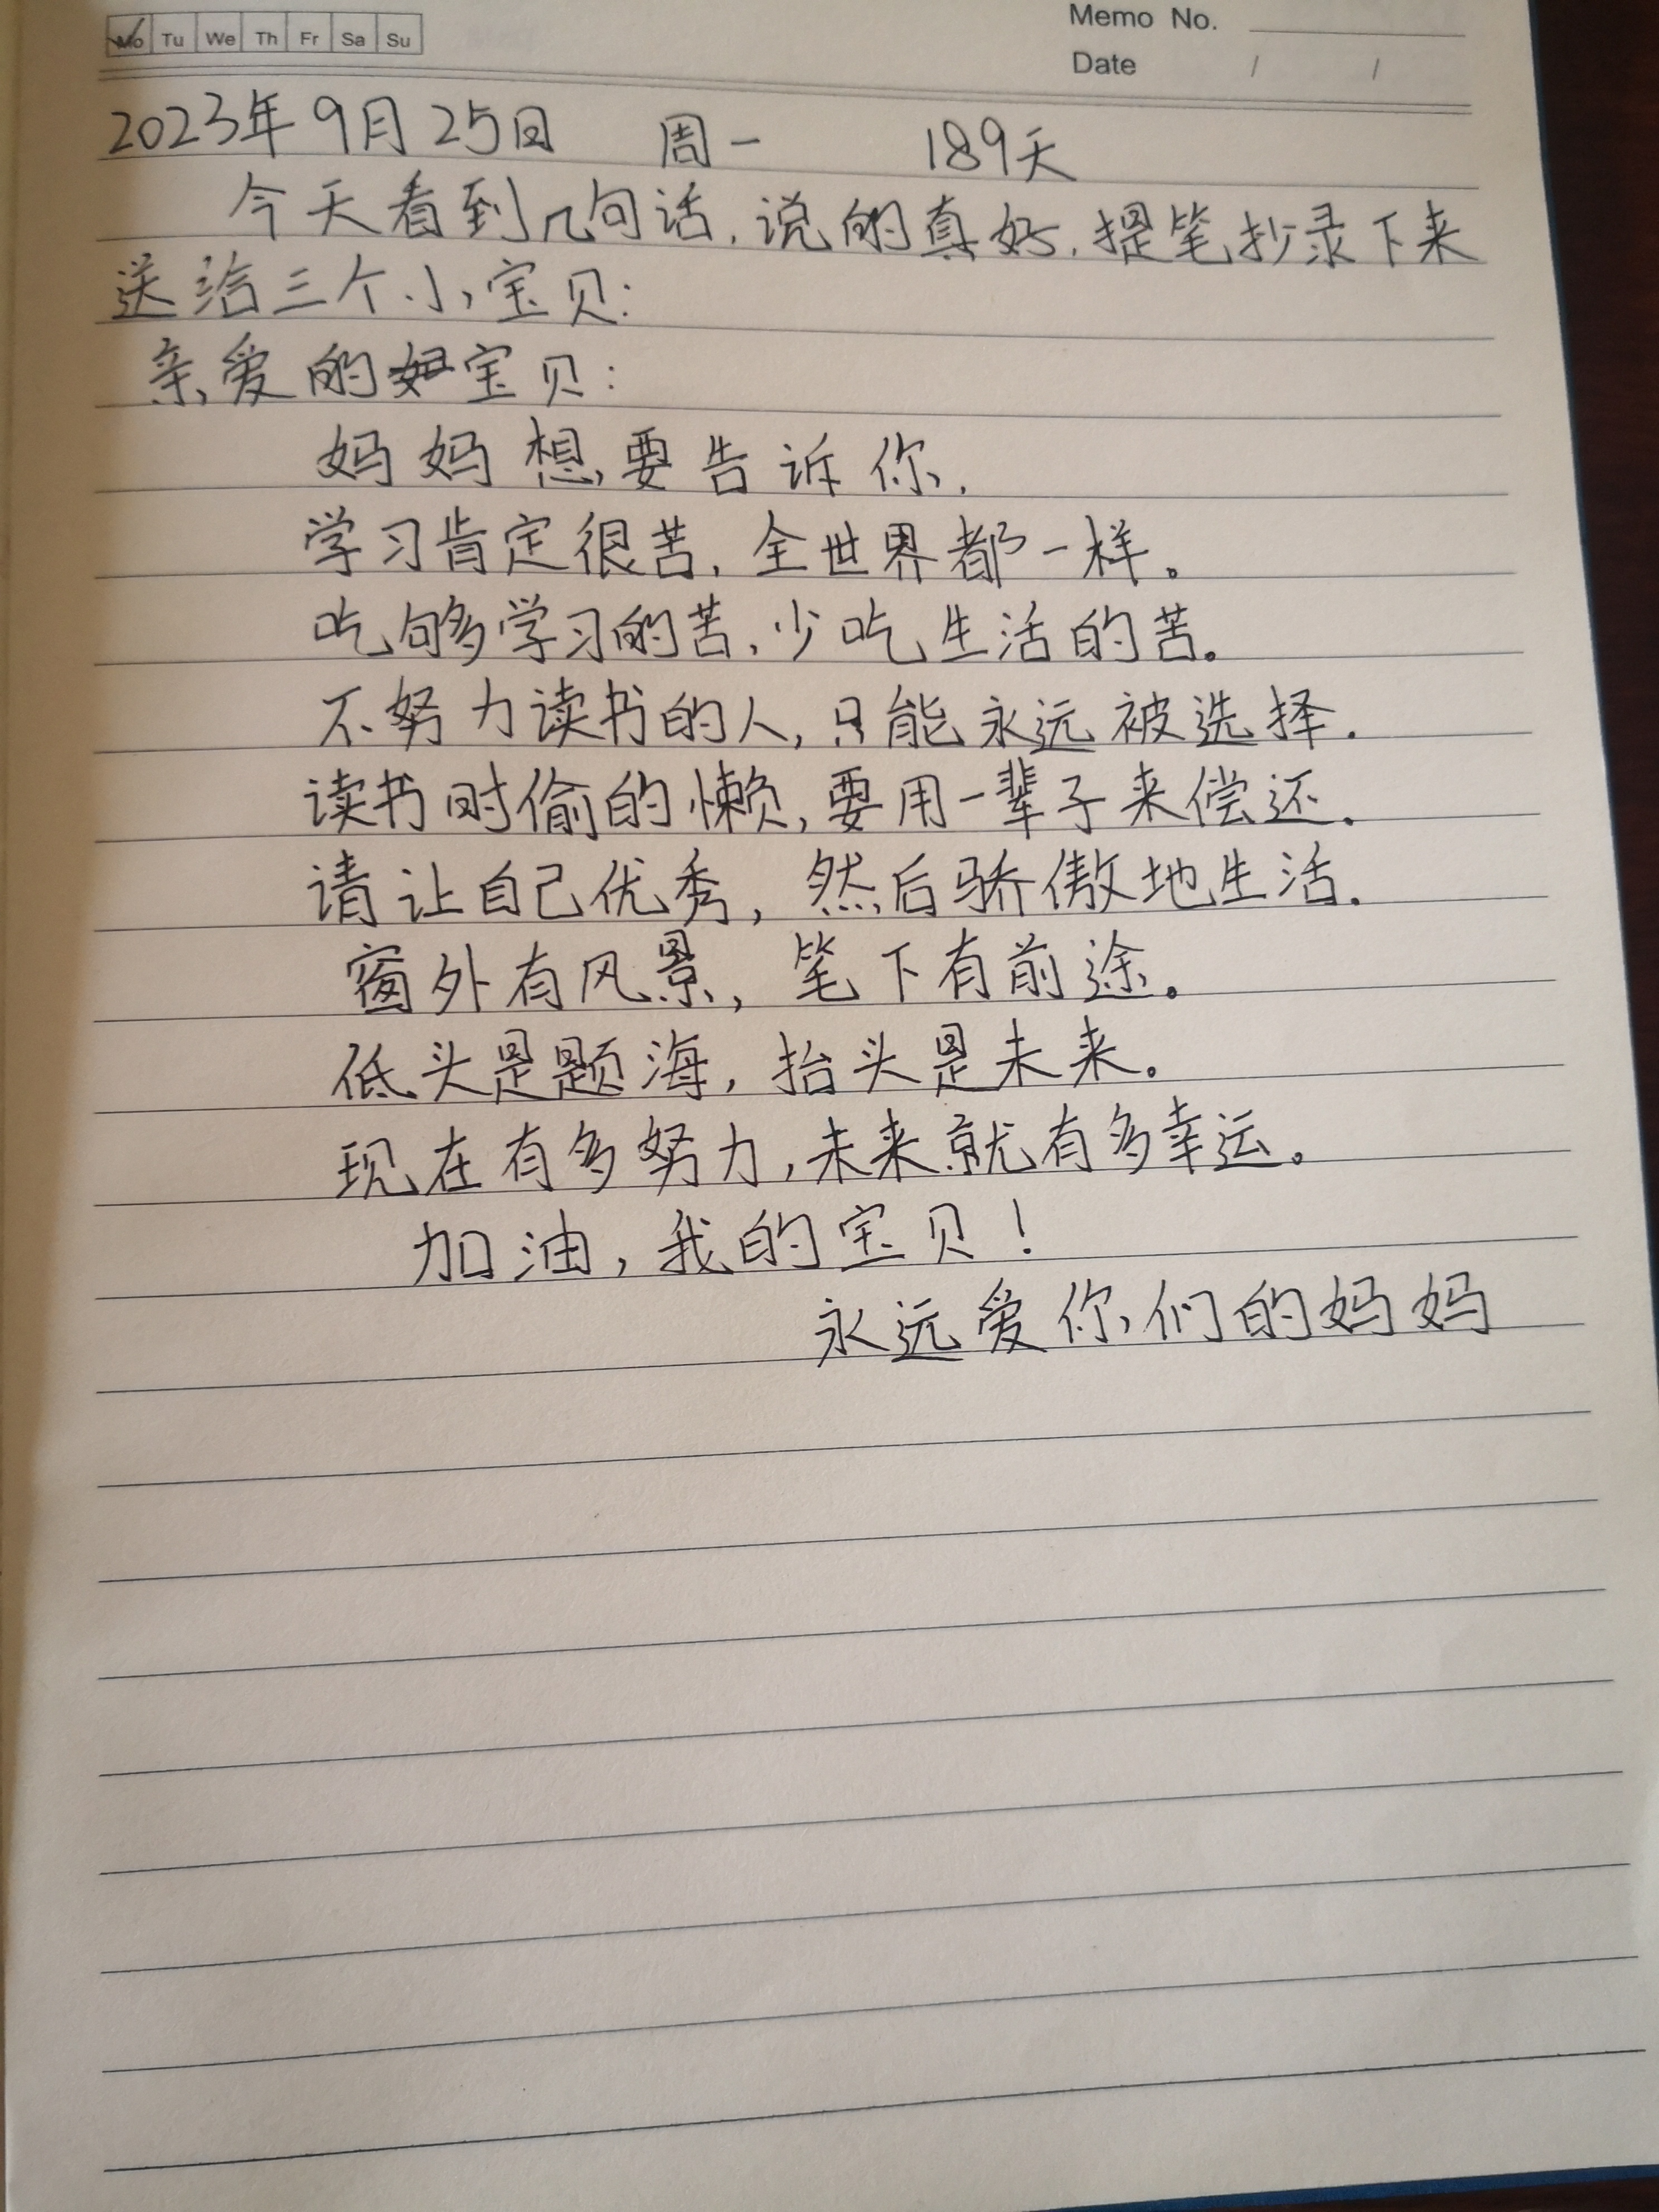 Mo Tu We Th Fr Sa Su
Memo No.
Date / /
2023年9月25日 周一 189天
今天看到几句话,说的真好,提笔抄录下来
送给三个小宝贝:
亲爱的宝贝:
妈妈想要告诉你,
学习肯定很苦,全世界都一样。
吃够学习的苦,少吃生活的苦。
不努力读书的人,只能永远被选择.
读书时偷的懒,要用一辈子来偿还.
请让自己优秀,然后骄傲地生活.
窗外有风景,笔下有前途。
低头是题海,抬头是未来。
现在有多努力,未来就有多幸运。
加油,我的宝贝!
永远爱你们的妈妈